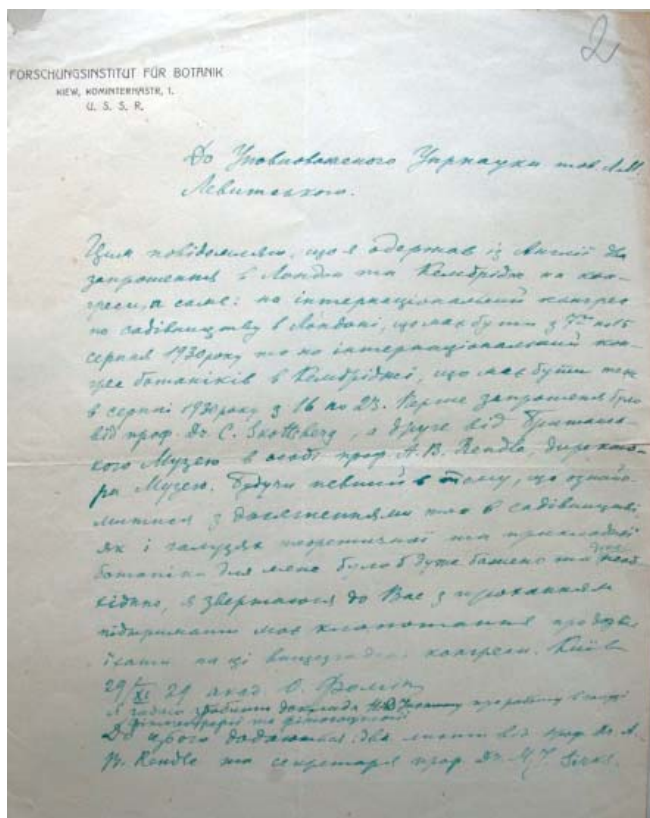 2
FORSCHUNGSINSTITUT FÜR BOTANIK
KIEW, KOMINTERNSTR, 1.
U. S. S. R.
До Уповноваженого Упрнауки тов. Л.М.
Левитського.
Цим повідомляю, що я одержав із Англії два
запрошення в Лондон та Кембрідж на кон-
греси, а саме: на інтернаціональний конгрес
по садівництву в Лондоні, що має бути з 7го по 15
серпня 1930 року та на інтернаціональний кон-
грес ботаніків в Кембріджі, що має бути теж
в серпні 1930 року з 16 по 23. Перше запрошення було
від проф. Dr C. Skottsberg, а друге від Британсь-
кого Музею в особі проф. A. B. Rendle, директо-
ра Музею. Будучи певний в тому, що ознайо-
митися з досягненнями як в садівництві
як і галузях теоретичної та прикладної
ботаніки для мене було б дуже бажано та необ-
хідно, я звертаюся до Вас з проханням
підтримати моє клопотання про
їхати на ці вищезгадані конгреси. Київ
29/XI 29 акад. О. Фомін
Я гадаю зробити доклада про роботу в галузі
та фітосоціології
До цього додаються два листи від проф. Dr A.
B. Rendle та секретаря проф. Dr M. J. Sirks.